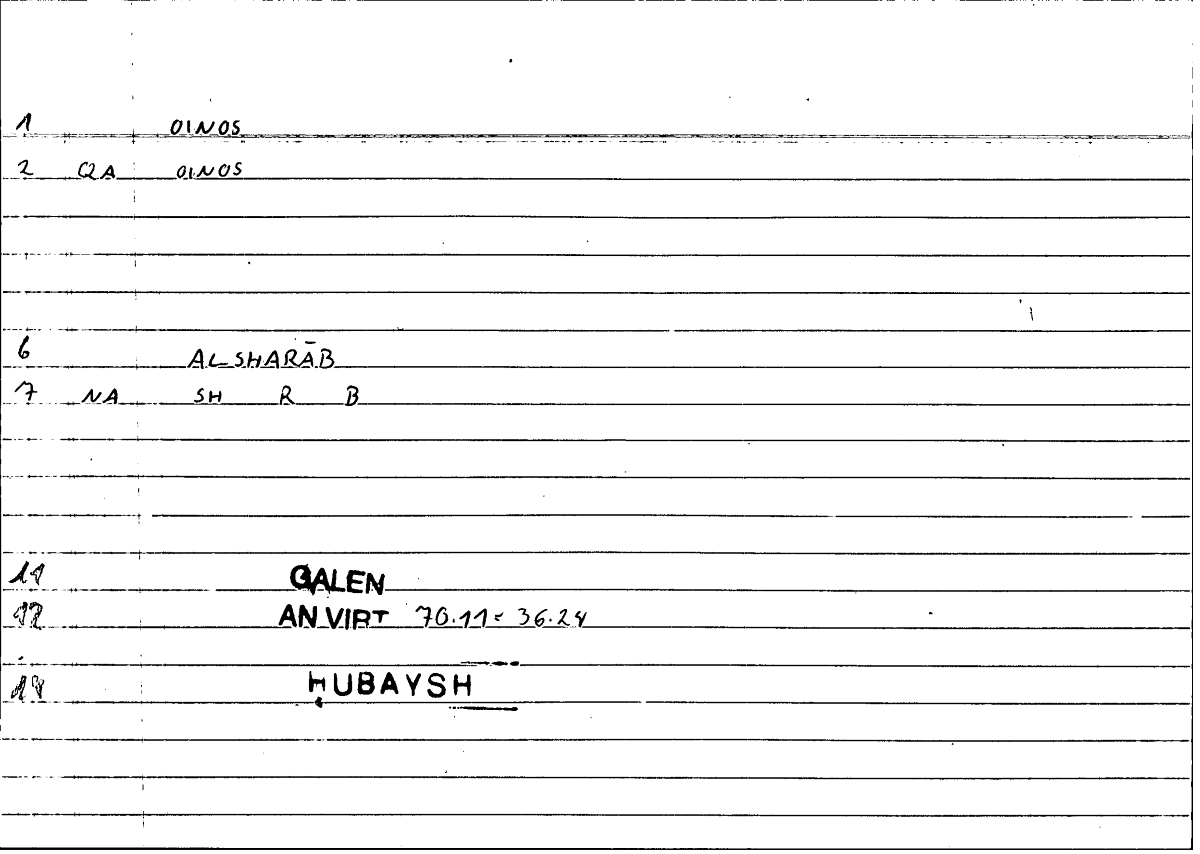 1 OINOS
2 QA OINOS
6 AL SHARĀB
7 NA SH R B
GALEN
AN VIRT 70.11 = 36.24
ḤUBAYSH